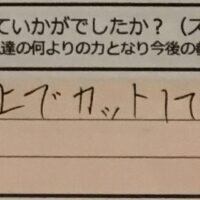 ていかがでしたか？（ス
達の何よりの力となり今後の
上でカットして